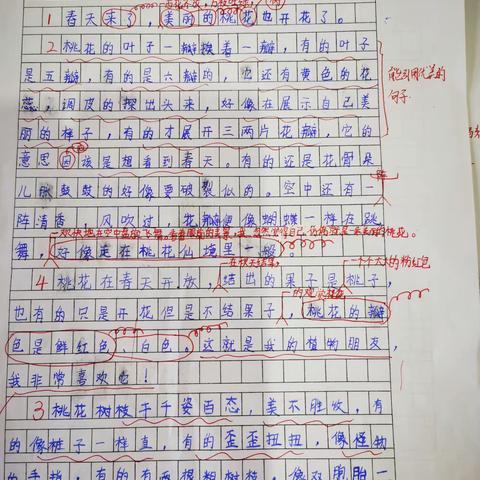 百花齐放,万物复苏,
1 春天来了,美丽的桃花也开花了。
2 桃花的叶子一瓣挨着一瓣,有的叶子
是五瓣,有的是六瓣的,它还有黄色的花
蕊,调皮的探出头来,好像在展示自己美
丽的样子,有的才展开三两片花瓣,它的
能引用优美的
句子
意思应该是想看到春天。有的还是花骨朵
儿,胀鼓鼓的好像要破裂似的。空中还有一
阵
阵清香,风吹过,花瓣便像蝴蝶一样在跳
舞,好像走在桃花仙境里一般。
4 桃花在春天开放,结出的果子是桃子,
在秋天结果
一个个大大的粉红包
也有的只是开花但是不结果子,桃花的瓣
色是鲜红色 白色。这就是我的植物朋友,
我非常喜欢它!
3 桃花树枝千千姿百态,美不胜收,有
的像桩子一样直,有的歪歪扭扭,像怪物
的手指,有的有两根粗树枝,像双胞胎一